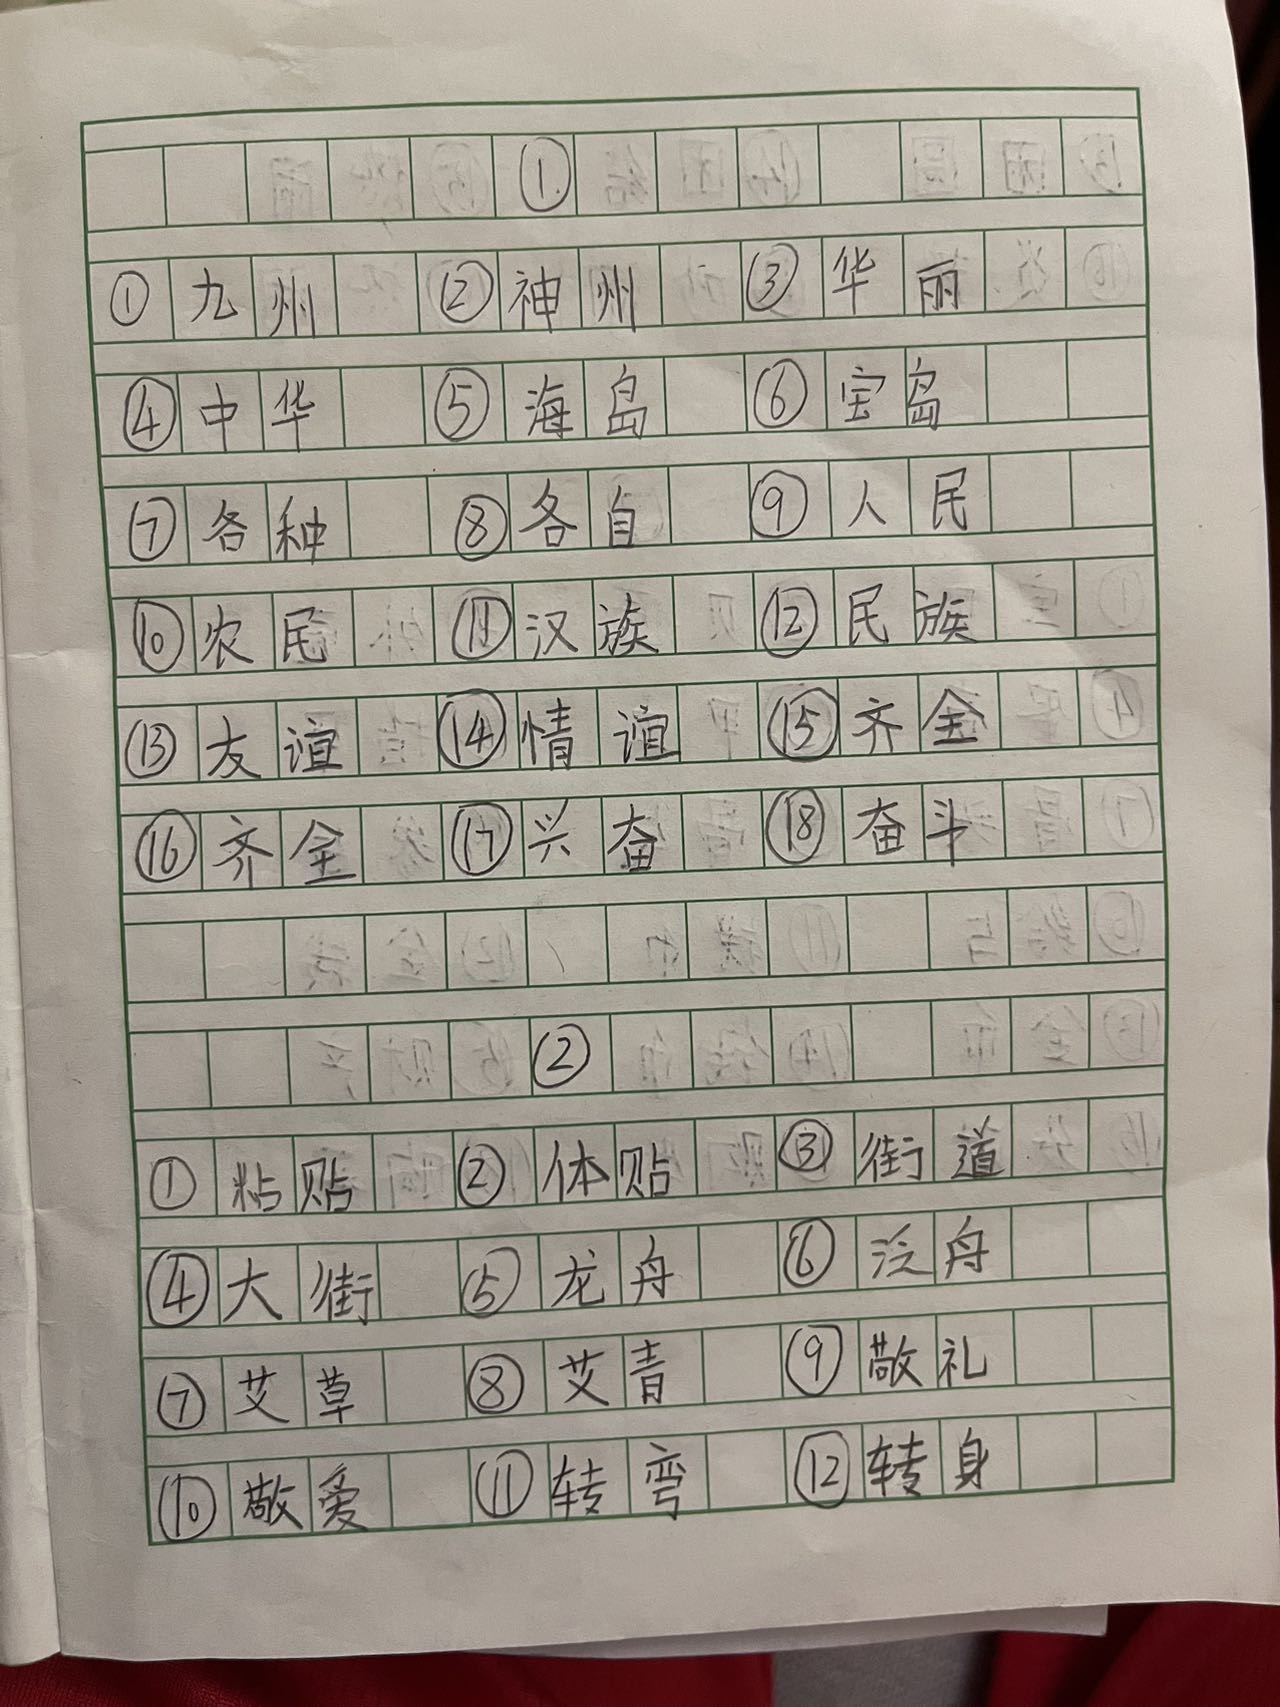 ①
①九州 ②神州 ③华丽
④中华 ⑤海岛 ⑥宝岛
⑦各种 ⑧各自 ⑨人民
⑩农民 ⑪汉族 ⑫民族
⑬友谊 ⑭情谊 ⑮齐全
⑯齐全 ⑰兴奋 ⑱奋斗
②
①粘贴 ②体贴 ③街道
④大街 ⑤龙舟 ⑥泛舟
⑦艾草 ⑧艾青 ⑨敬礼
⑩敬爱 ⑪转弯 ⑫转身